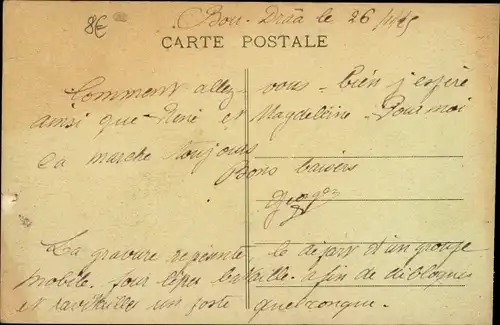 8€
Bou-Drâa le 26
CARTE POSTALE
Comment allez-vous - bien j'espère
ainsi que René et Magdeleine - Pour moi
ça marche toujours
Bons baisers
La gravure représente, le départ d'un groupe
mobile - pour bataille - afin de débloquer
et ravitailler un poste quelconque.